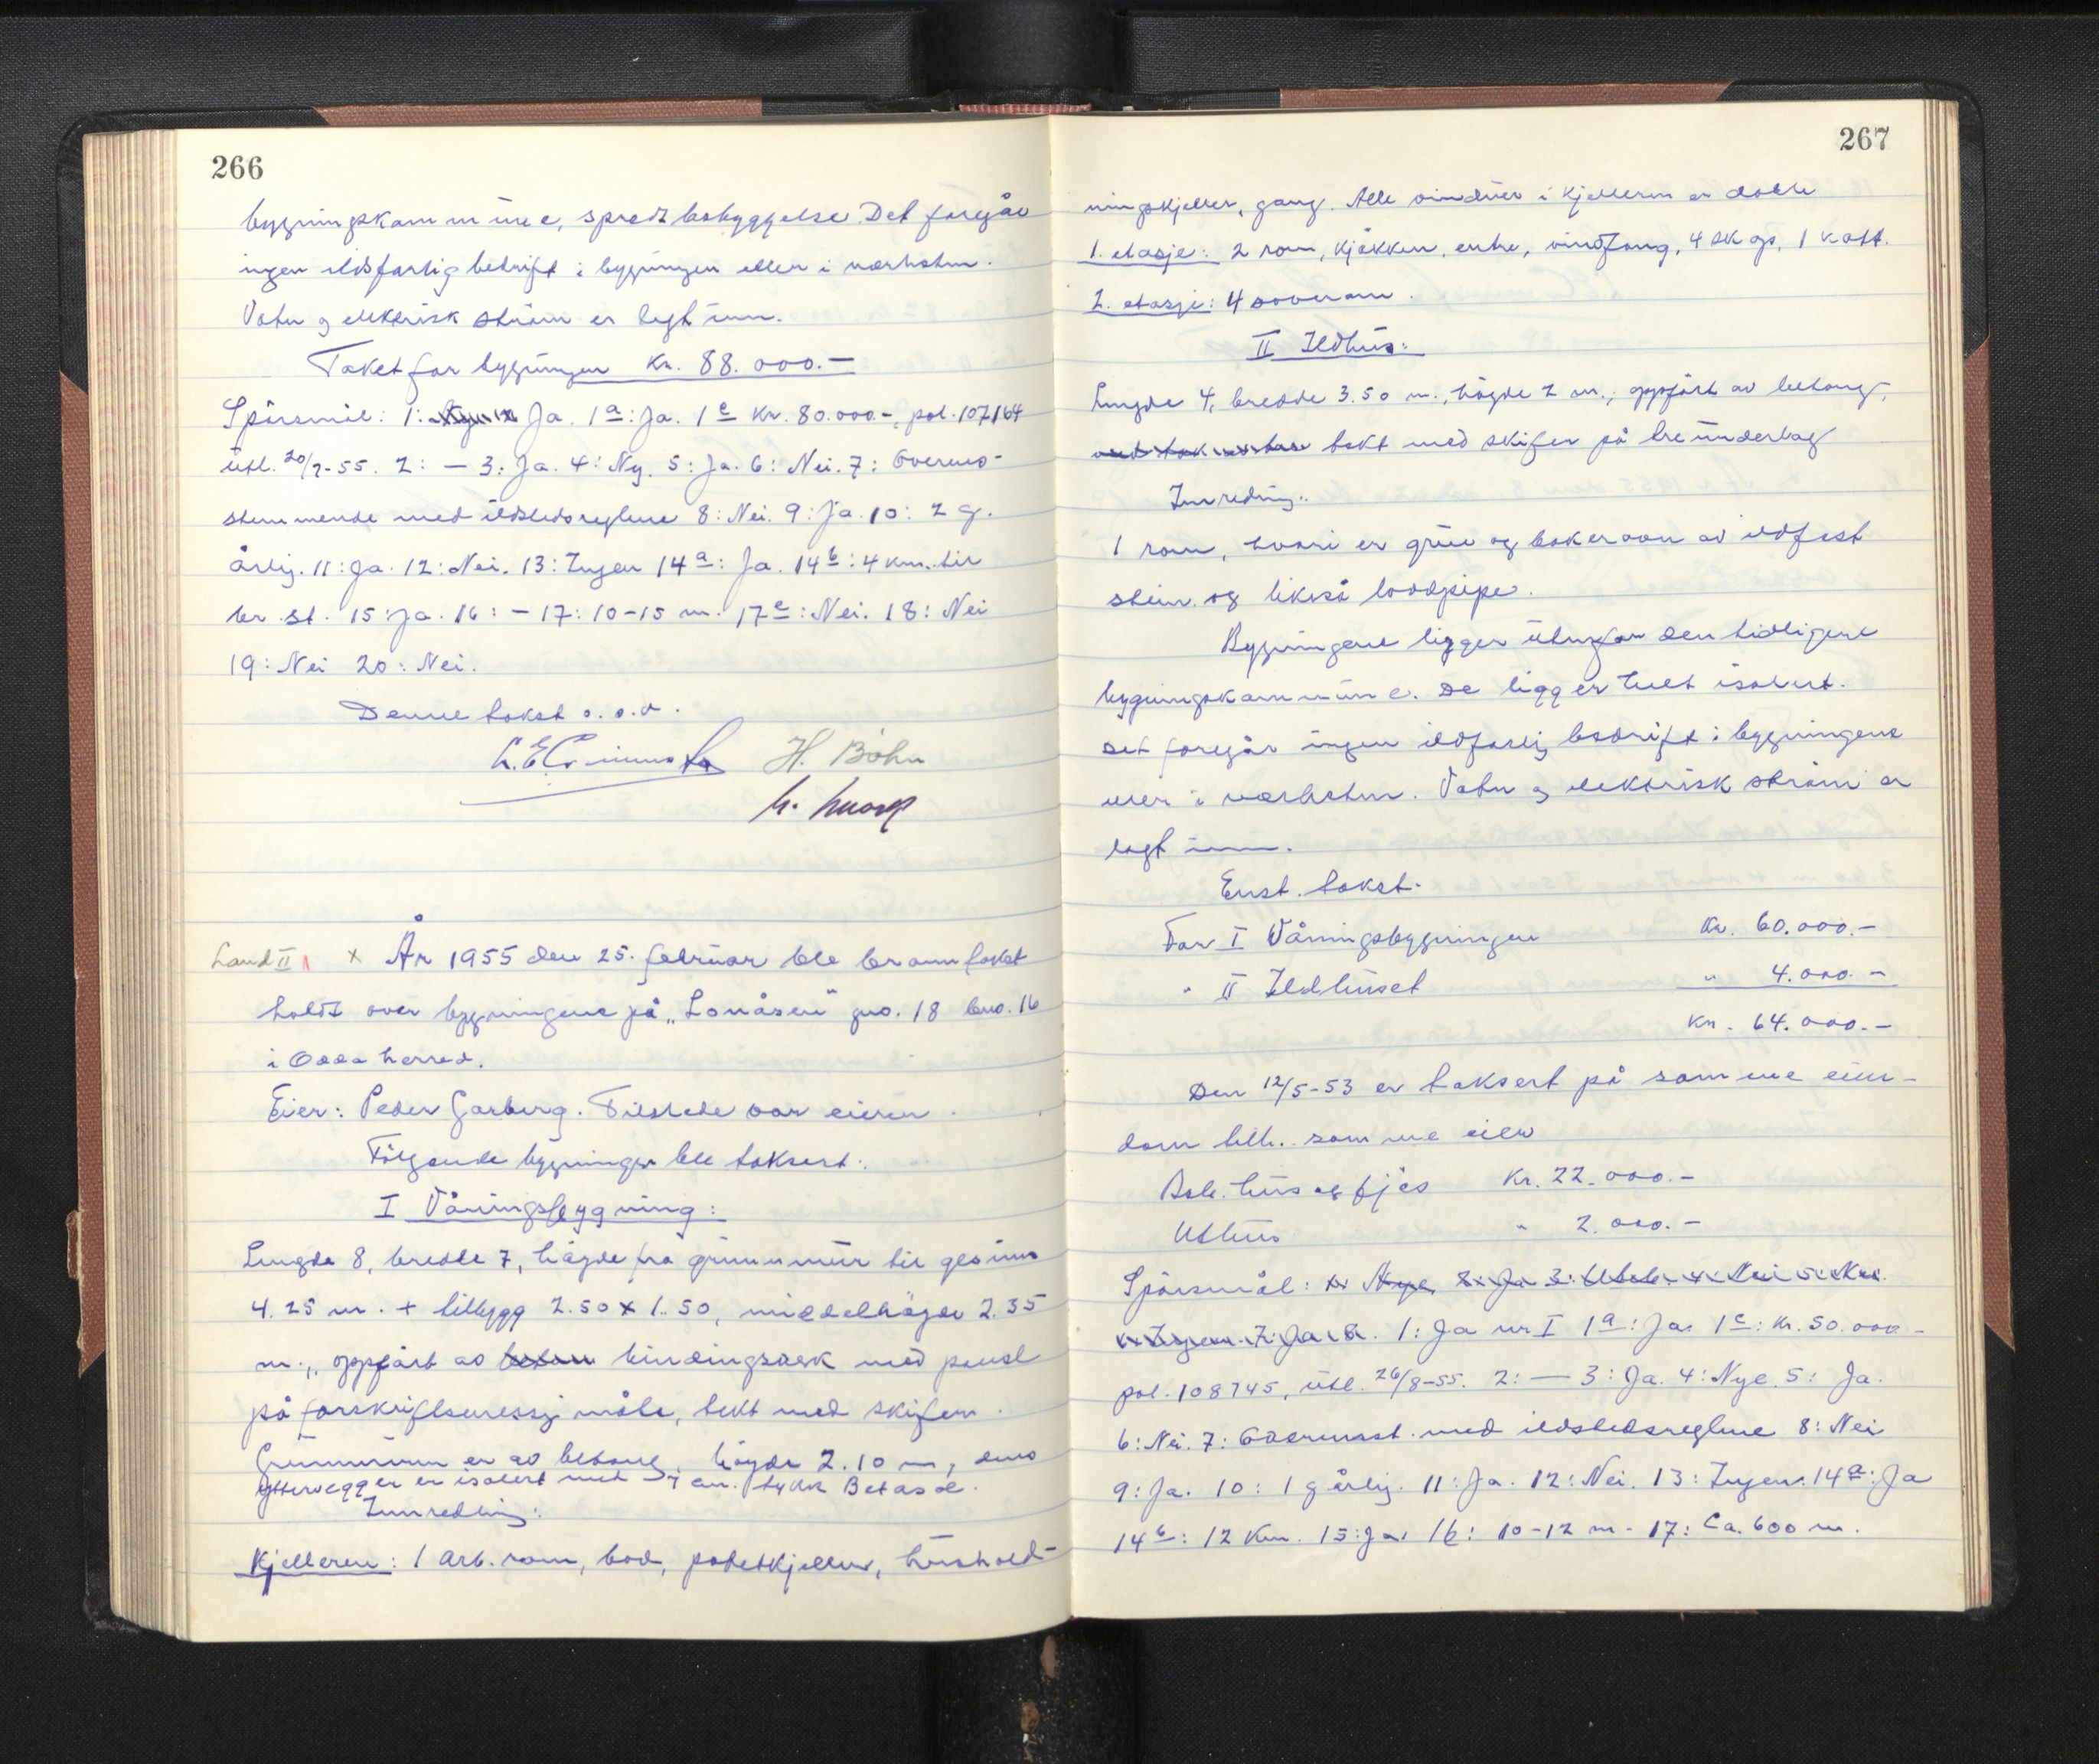 266
bygningskommune, spredt bebyggelse. Det foregår
ingen ildsfarlig bedrift i bygningen eller i nærheten.
Vatn og elektrisk strøm er lagt inn.
Takst for bygningen Kr. 88.000.-
Spörsmål: 1: Ja. 1a: Ja. 1c Kr. 80.000.-, pol. 107164
utl. 20/2-55. 2: - 3: Ja. 4: Ny. 5: Ja. 6: Nei. 7: Overens-
stemmende med ildstedsreglene 8: Nei. 9: Ja. 10: 2 g.
årlig. 11: Ja. 12: Nei. 13: Ingen 14a: Ja. 14b: 4 km. til
br. st. 15: Ja. 16: - 17: 10-15 m. 17c: Nei. 18: Nei
19: Nei 20: Nei.
Denne takst o.s.v.
H. Böhn
Land II x År 1955 den 25. februar ble branntakst
holdt over bygningene på "Lonåsen" gno. 18 bno. 16
i Odda herred.
Eier: Peder Garberg. Tilstede var eieren.
Fölgende bygninger ble taksert:
I Våningsbygning:
Lengde 8, bredde 7, högde fra grunnmur til gesims
4.25 m. + tilbygg 2.50 x 1.50, middelhögde 2.35
m., oppfört av betong bindingsverk med panel
på forskriftsmessig måte, tekt med skifer.
Grunnmuren er av betong, högde 2.10 m, dens
yttervegger er isolert med 7 cm. tykk Betasol.
Innredning:
Kjelleren: 1 arb. rom, bod, potetkjeller, hushold-
267
ningskjeller, gang. Alle vinduer i kjelleren er doble
1. etasje: 2 rom, kjökken, entre, vindfang, 4 skap, 1 kott.
2. etasje: 4 soverom.
II Ildhus:
Lengde 4, bredde 3.50 m., högde 2 m., oppfört av betong,
tekt med skifer på treunderlag
Innredning:
1 rom, hvori er grue og bakerovn av ildfast
stein og likeså loddpipe.
Bygningene ligger utenfor den tidligere
bygningskommune. De ligger helt isolert.
Det foregår ingen ildfarlig bedrift i bygningene
eller i nærheten. Vatn og elektrisk ström er
lagt inn.
Enst. takst.
For I Våningsbygningen Kr. 60.000.-
" II Ildhuset " 4.000.-
Kr. 64.000.-
Den 12/5-53 er taksert på samme eien-
dom tilh. samme eier
Beb. hus og fjös Kr. 22.000.-
Uthus " 2.000.-
Spörsmål: 1: Nye, 2: Ja 3: 4: Nei 5: Nei.
6: Ingen. 7: Ja. 8. 1: Ja nr I 1a: Ja. 1c: Kr. 50.000.-
pol. 108745, utl. 26/8-55. 2: - 3: Ja. 4: Nye. 5: Ja.
6: Nei. 7: Overensst. med ildstedsreglene 8: Nei
9: Ja. 10: 1 g årlig. 11: Ja. 12: Nei. 13: Ingen. 14a: Ja
14b: 12 Km. 15: Ja. 16: 10-12 m. - 17: Ca. 600 m.